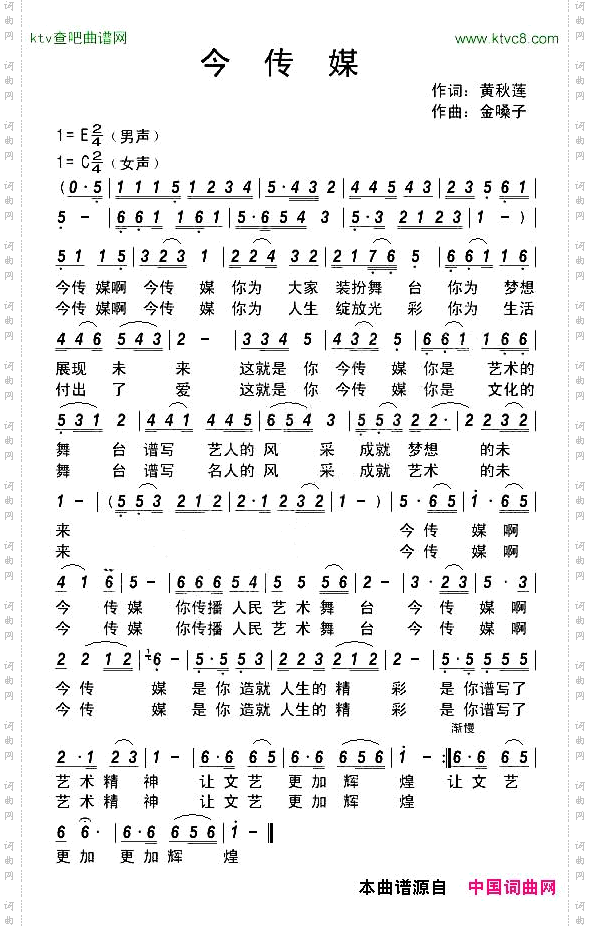 ktv查吧曲谱网
www.ktvc8.com
今 传 媒
作词：黄秋莲
作曲：金嗓子
1= E 2/4（男声）
1= C 2/4（女声）
(0·5 | 1 1 1 5 | 1 2 3 4 | 5·4 3 2 | 4 4 5 4 3 | 2 3 5 6 1 |
5 - | 6 6 1 1 6 1 | 5·6 5 4 3 | 5·3 2 1 2 3 | 1 - )
5 1 1 5 | 3 2 3 1 | 2 2 4 3 2 | 2 1 7 6 5 | 6 6 1 1 6 |
今传 媒啊 今传 媒 你为 大家 装扮舞 台 你为 梦想
今传 媒啊 今传 媒 你为 人生 绽放光 彩 你为 生活
4 4 6 5 4 3 | 2 - | 3 3 4 5 | 4 3 2 5 | 6 6 1 1 5 6 |
展现 未 来 这就是 你 今传 媒 你是 艺术的
付出 了 爱 这就是 你 今传 媒 你是 文化的
5 3 1 2 | 4 4 1 4 4 5 | 6 5 4 3 | 5 5 3 2 2· | 2 2 3 2 |
舞 台 谱写 艺人的 风 采 成就 梦想 的未
舞 台 谱写 名人的 风 采 成就 艺术 的未
1 - | (5 5 3 2 1 2 | 2·1 2 3 2 | 5 5 3 2 1 2 | 1 -) | 5·6 5 | 1·6 5 |
来 今 传 媒 啊
来 今 传 媒 啊
4 1 6 | 5 - | 6 6 6 5 4 | 5 5 5 6 | 2 - | 3·2 3 | 5·3 |
今 传 媒 你传播 人民 艺 术 舞 台 今 传 媒 啊
今 传 媒 你传播 人民 艺 术 舞 台 今 传 媒 啊
2 2 1 2 | 6· - | 5·5 5 3 | 2 3 4 5 1 2 | 2 - | 5·5 3 5 |
今 传 媒 是 你 造就 人生的 精 彩 是 你谱写了
今 传 媒 是 你 造就 人生的 精 彩 是 你谱写了
渐慢
2·1 2 3 | 1 - | 6·6 6 5 | 6·6 6 5 6 | 1 - :‖ 6·6 6 5 |
艺 术 精 神 让 文 艺 更 加 辉 煌 让 文 艺
艺 术 精 神 让 文 艺 更 加 辉 煌
6 6· | 6·6 6 5 6 | 1 - ‖
更 加 更 加 辉 煌
本曲谱源自 中国词曲网
词曲网